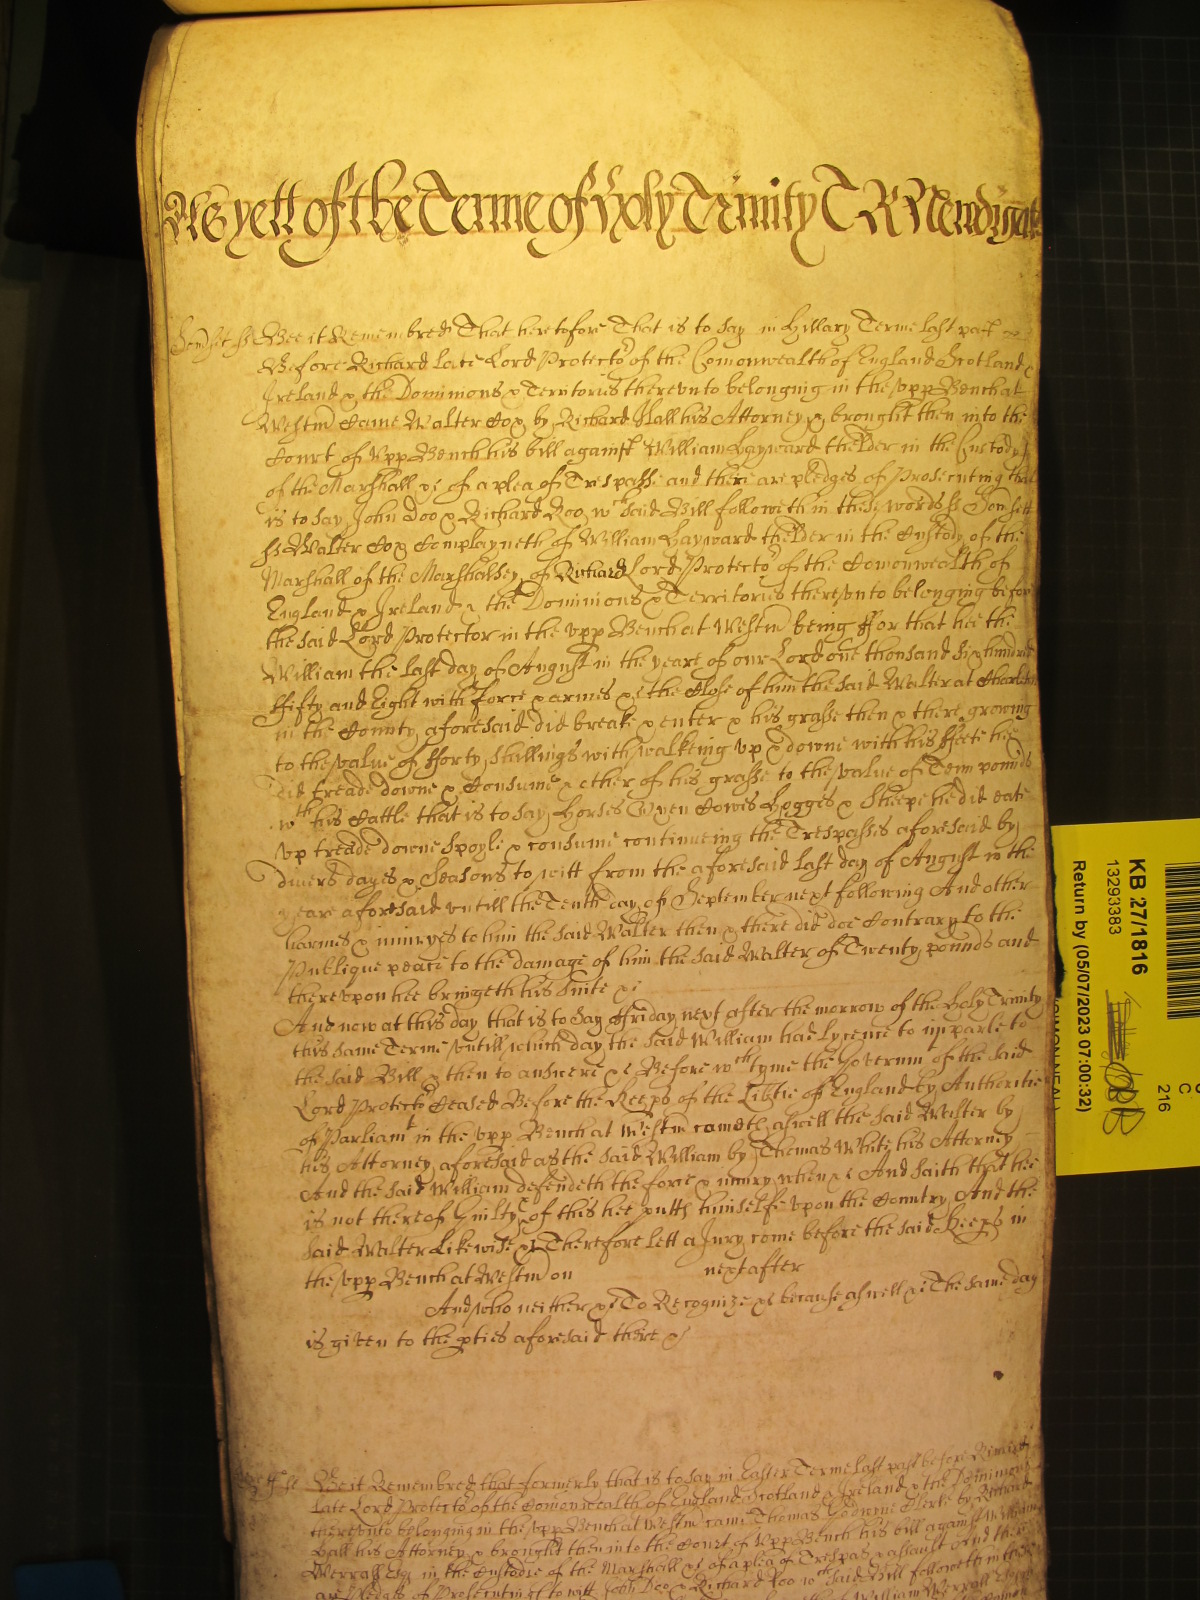 As yett of the Terme of Holy Trinity R Newdigate
Somset ss Bee it Remembred That heretofore That is to say in Hillary Terme last past
Before Richard late Lord Protector of the Comonwealth of England Scotland &
Ireland & the Dominions & Territories therevnto belonging in the vpp Bench at
Westm Came Walter Cox by Richard Hall his Attorney & brought then into the
Court of Vpp Bench his bill against William Hayward thelder in the Custody
of the Marshall &c of a plea of Trespasse and there are pledges of Prosecuting that
is to say John Doo & Richard Roo wch said Bill followeth in these words ss Somsett
ss Walter Cox Complayneth of William Hayward thelder in the Custody of the
Marshall of the Marshalsey of Richard Lord Protector of the Comonwealth of
England & Ireland & the Dominions & Territories therevnto belonging before
the said Lord Protector in the vpp Bench at Westm being ffor that hee the
William the last day of August in the yeare of our Lord one thousand six hundred
ffifty and Eight with force & armes &c the Close of him the said Walter at Charleton
in the County aforesaid did breake & enter & his grasse then & there growing
to the value of fforty shillings with walkeing vp & downe with his ffeete hee
did treade downe & Consume & other of his grasse to the value of Tenn pounds
wth his Cattle that is to say Horses Oxen Cowes Hogges & Sheepe he did eate
vp treade downe spoyle & consume continueing the Trespasses aforesaid by
divers dayes & seasons to witt from the aforesaid last day of August in the
yeare aforesaid vntill the Tenth day of September next following And other
harmes & iniuryes to him the said Walter then & there did doe Contrary to the
Publique peace to the damage of him the said Walter of Twenty pounds and
therevpon hee bringeth his suite &c
And now at this day that is to say ffriday next after the morrow of the Holy Trinity
this same Terme vntill which day the said William had lycence to imparle to
the said Bill & then to answere &c Before wch tyme the Governmt of the said
Lord Protector Ceased Before the Keepers of the Libtie of England by Authoritie
of Parliamt in the vpp Bench at Westm cometh aswell the said Walter by
his Attorney aforesaid as the said William by Thomas White his Attorney
And the said William defendeth the force & iniury when &c And saith that hee
is not thereof Guilty & of this hee putts himselfe vpon the Country And the
said Walter Likewise &c Therefore lett a Jury come before the said Keeps in
the vpp Bench at Westm on next after
And who neither &c To Recognize &c because aswell &c The same day
is given to the pties aforesaid there &c
ss Bee it Remembred that formerly that is to say in Easter Terme last past before Richard
late Lord Protector of the Comonwealth of England Scotland & Ireland & the Dominions
therevnto belonging in the vpp Bench at Westm came Thomas Godwyne Clerke by Richard
Hall his Attorney & brought then into the Court of Vpp Bench his bill against William
Merrall Esq in the Custodie of the Marshall &c of a plea of Trespas & assault And there
are Pledges of Prosecuting to witt John Doo & Richard Roo wch said Bill followeth in these
William Merrall
KB 27/1816
13293383
Return by (05/07/2023 07:00:32)
C
216